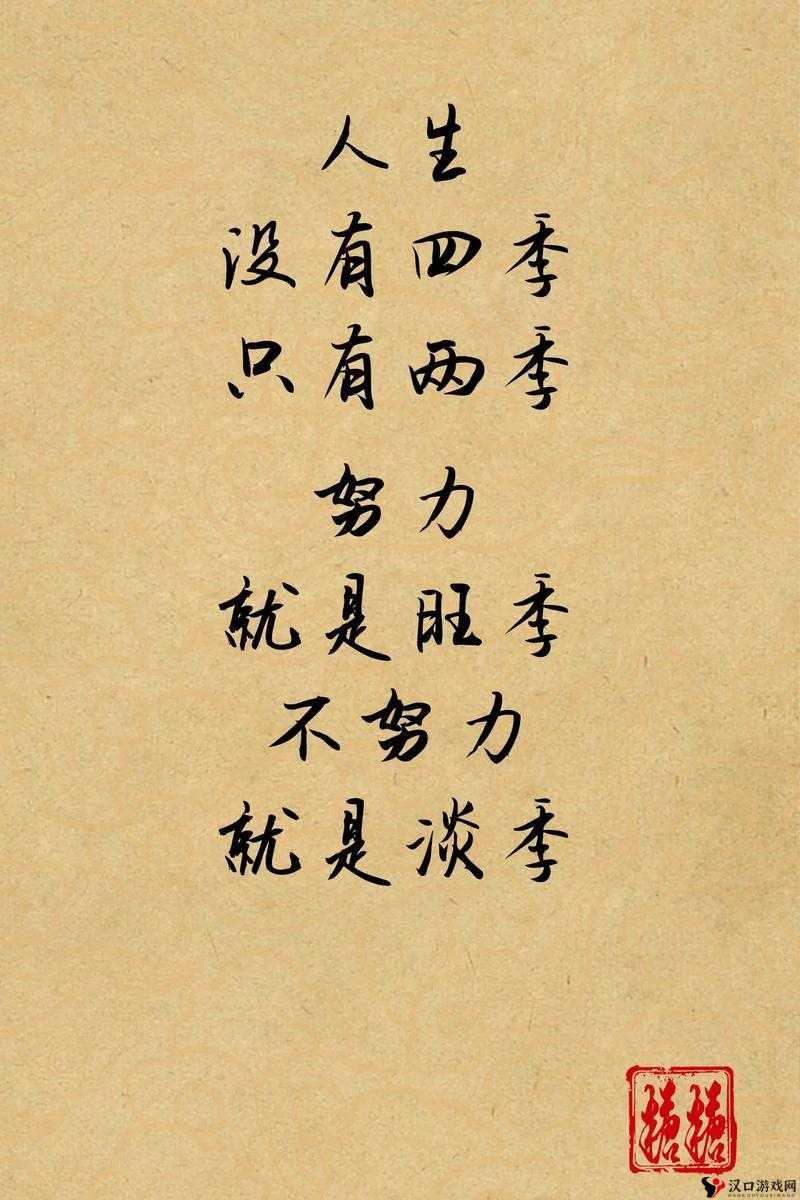 人生
没有四季
只有两季
努力
就是旺季
不努力
就是淡季
糖糖
汉口游戏网
HANKOUYOUXIWANG